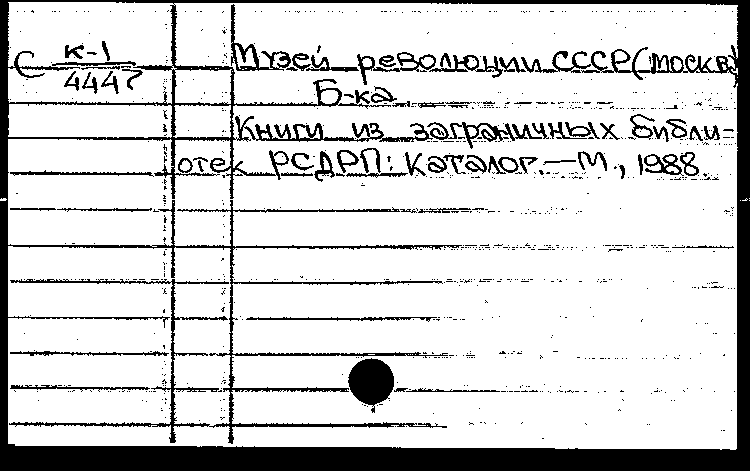 С к-1
Музей революции СССР (Москва)
Б-ка
Книги из заграничных библи-
отек РСДРП: Каталог.—М., 1988.